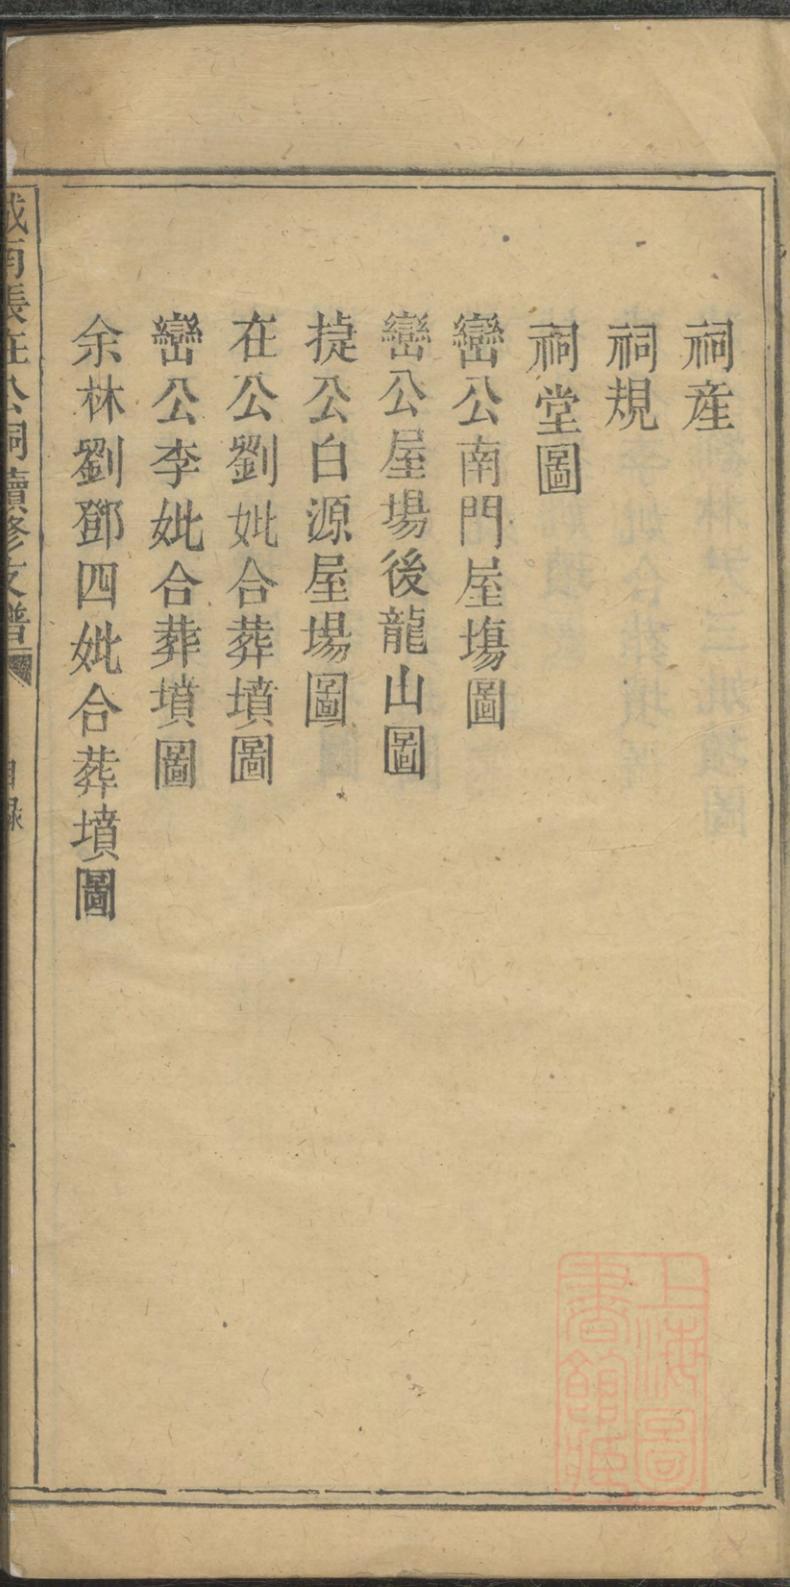 祠産
祠規
祠堂圖
巒公南門屋塲圖
巒公屋場後龍山圖
㨗公白源屋場圖
在公劉妣合葬墳圖
巒公李妣合葬墳圖
余林劉鄧四妣合葬墳圖
城南張在公祠續修支譜
目錄
上海圖書館藏